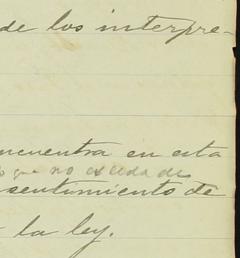 de los interpre-
ncuentra en esta
que no exceda de
sentimiento de
la ley.